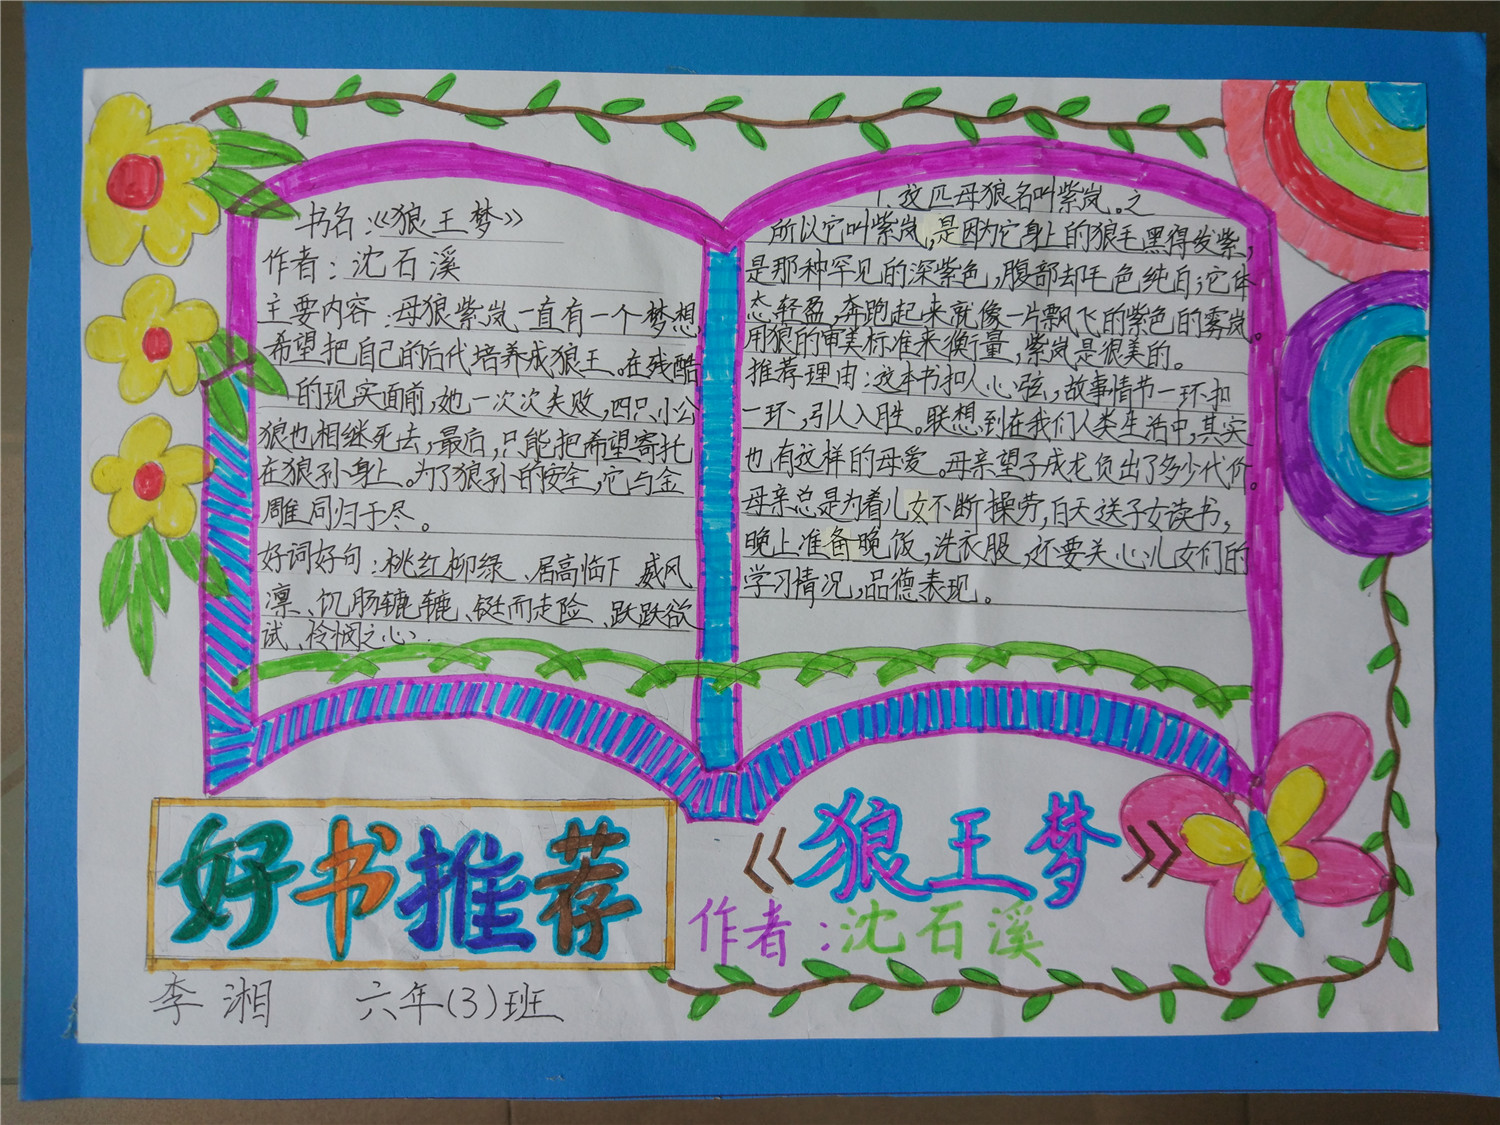 书名:《狼王梦》
作者:沈石溪
主要内容:母狼紫岚一直有一个梦想,
希望把自己的后代培养成狼王。在残酷
的现实面前,她一次次失败,四只小公
狼也相继死去,最后,只能把希望寄托
在狼孙身上。为了狼孙的安全,它与金
雕同归于尽。
好词好句:桃红柳绿、居高临下 威风
凛、饥肠辘辘、铤而走险、跃跃欲
试、怜悯之心
1.这匹母狼名叫紫岚。之
所以它叫紫岚,是因为它身上的狼毛黑得发紫,
是那种罕见的深紫色,腹部却毛色纯白;它体
态轻盈,奔跑起来就像一片飘飞的紫色的雾岚。
用狼的审美标准来衡量,紫岚是很美的。
推荐理由:这本书扣人心弦,故事情节一环扣
一环,引人入胜。联想到在我们人类生活中,其实
也有这样的母爱。母亲望子成龙负出了多少代价。
母亲总是为着儿女不断操劳,白天送子女读书,
晚上准备晚饭,洗衣服,还要关心儿女们的
学习情况,品德表现。
好书推荐
《狼王梦》
作者:沈石溪
李湘 六年(3)班